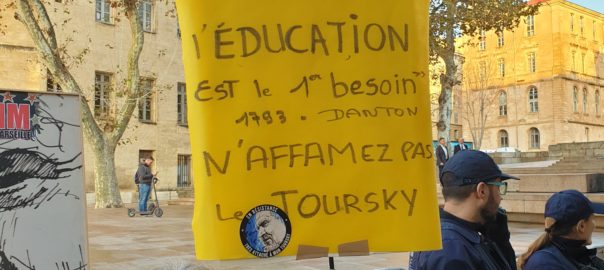 l'ÉDUCATION
EST le 1er besoin"
1793. DANTON
N'AFFAMEZ PAS
Le TOURSKY
EN RÉSISTANCE
M
MARSEILLE